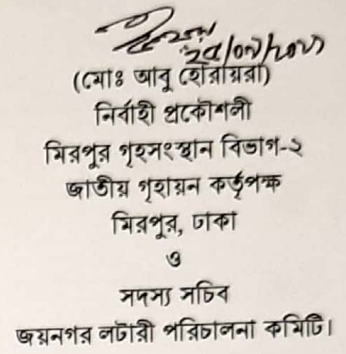 (মোঃ আবু হোরায়রা)
নির্বাহী প্রকৌশলী
মিরপুর গৃহসংস্থান বিভাগ-২
জাতীয় গৃহায়ন কর্তৃপক্ষ
মিরপুর, ঢাকা
ও
সদস্য সচিব
জয়নগর লটারী পরিচালনা কমিটি।